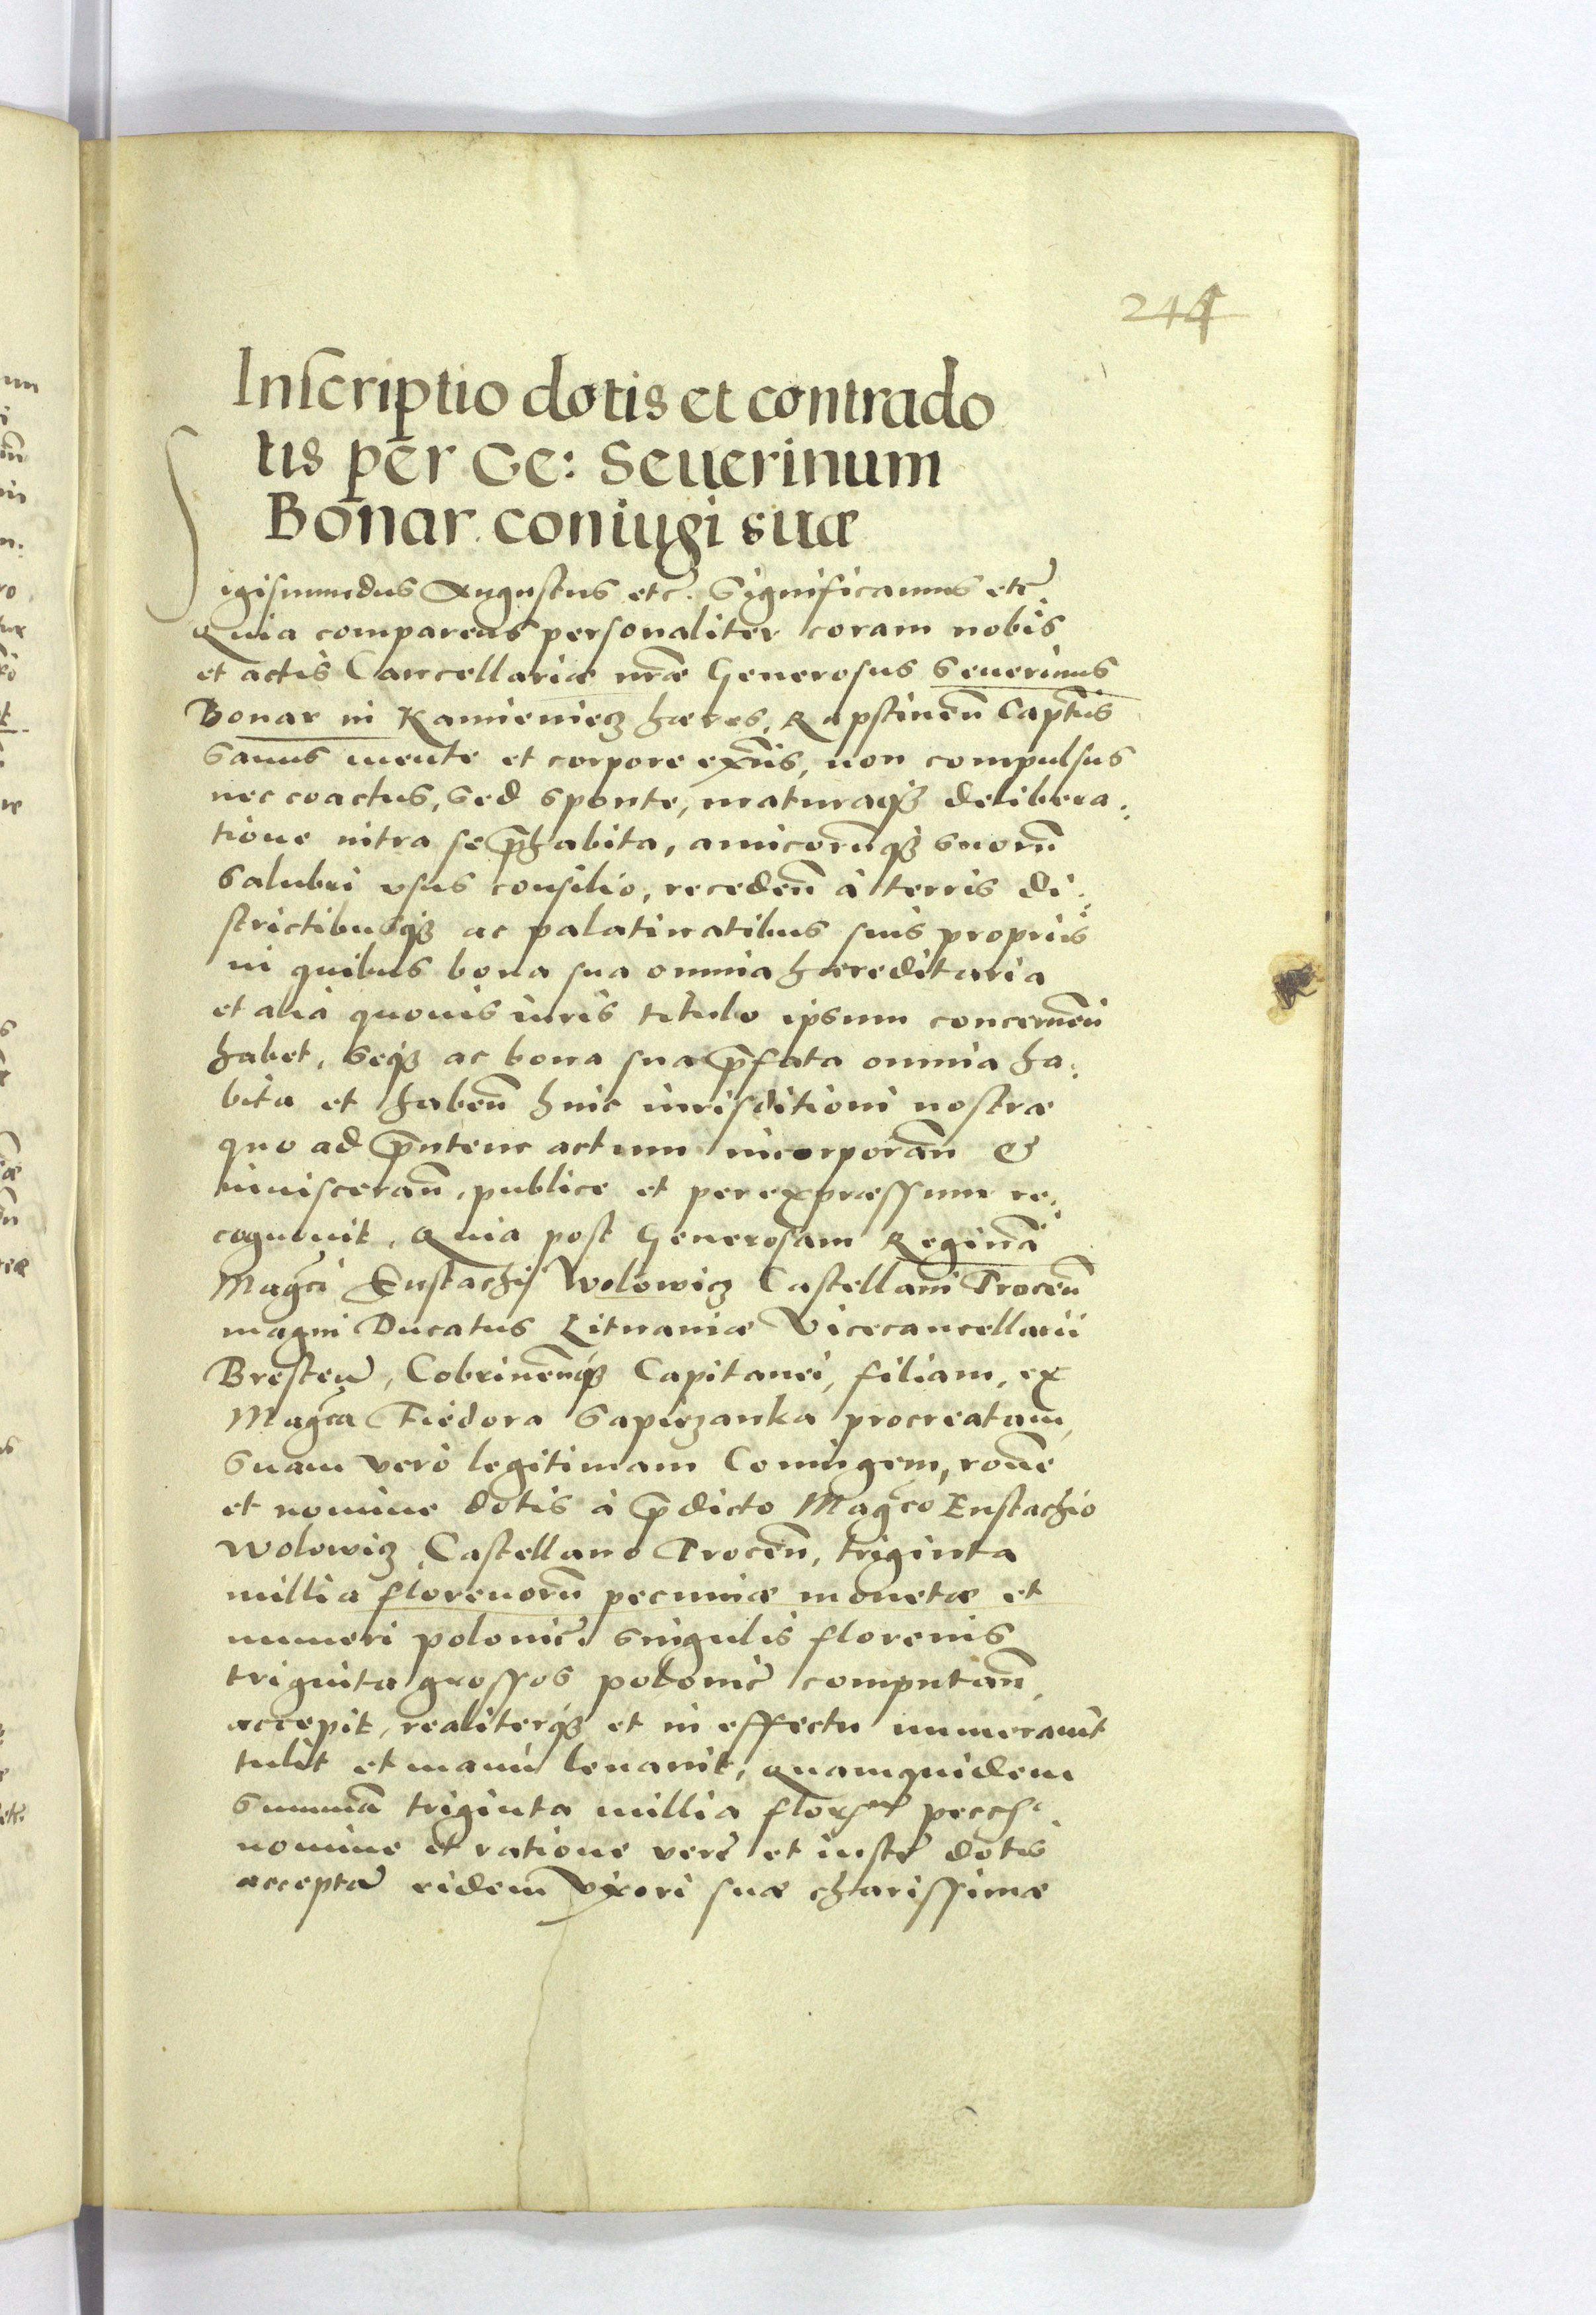 244
Inscriptio dotis et contrado
tis per Ge: Seuerinum
Bonar coniugi suæ
Sigismundus Augustus etc. Significamus etc.
Quia comparens personaliter coram nobis
et actis Cancellariæ nr̃æ Generosus Seuerinus
Bonar in Kamieniecz hæres, Rapstineñ Capt̃us
Sanus mente et corpore ex̃ns, non compulsus
nec coactus, sed sponte, maturaq3 delibera:
tione intra se p̃habita, amicorũq3 suorũ
salubri vsus consilio, recedeñ à terris di:
strictibusq3 ac palatinatibus suis proprijs
in quibus bona sua omnia hæreditaria
et alia quouis iuris titulo ipsum concerneñ
habet, seq3 ac bona sua p̃fata omnia ha:
bita et habeñ huic iurisditioni nostræ
quo ad p̃ntem actum incorporañ et
inuiscerañ, publice et per expræssum re:
cognouit, Quia post Generosam Reginã
Mag̃ci Eustachij Wolowicz Castellani Troceñ
magni Ducatus Lituaniæ Vicecancellarii
Bresteñ, Cobrineñq3 Capitanei, filiam, ex
Mag̃ca Fiedora Sapiezanka procreatam,
suam verò legitimam Coniugem, rõne
et nomine dotis à p̃dicto Mag̃co Eustachio
Wolowicz Castellano Troceñ, triginta
millia florenorũ pecuniæ monetæ et
numeri polonic̃. singulis florenis
triginta grossos polonic̃ computañ,
accepit, realiterq3 et in effectu numerauit
tulit et manu leuauit, Quamquidem
summã triginta millia
nomine et ratione veræ et iustæ dotis
acceptã eidem Vxori suæ charissimæ